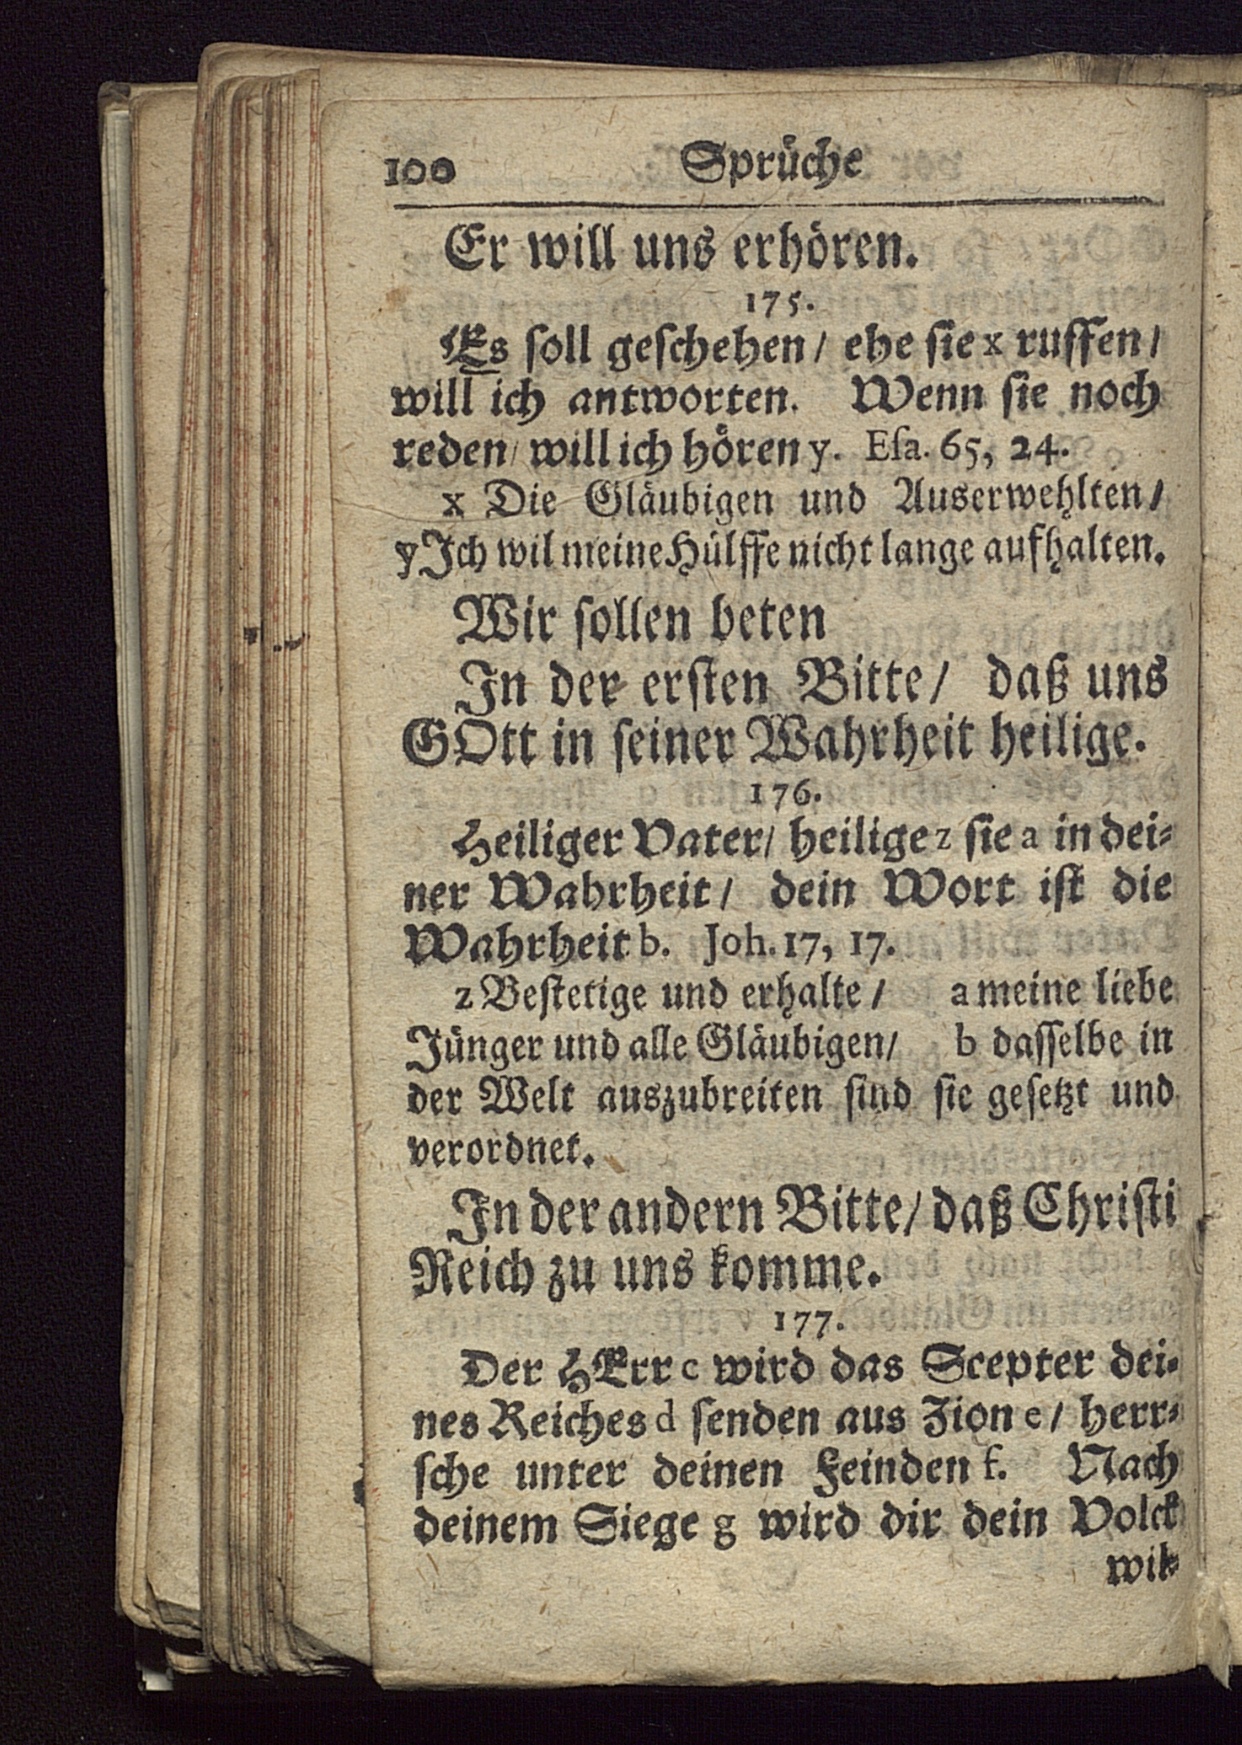 100 Sprüche
Er will uns erhören.
175.
Es soll geschehen / ehe sie x ruffen /
will ich antworten. Wenn sie noch
reden / will ich hören y. Esa. 65, 24.
x Die Gläubigen und Auserwehlten /
y Ich wil meine Hülffe nicht lange aufhalten.
Wir sollen beten
In der ersten Bitte / daß uns
GOtt in seiner Wahrheit heilige.
176.
Heiliger Vater / heilige z sie a in dei-
ner Wahrheit / dein Wort ist die
Wahrheit b. Joh. 17, 17.
z Bestetige und erhalte / a meine liebe
Jünger und alle Gläubigen / b dasselbe in
der Welt auszubreiten sind sie gesetzt und
verordnet.
In der andern Bitte / daß Christi
Reich zu uns komme.
177.
Der HErr c wird das Scepter dei-
nes Reiches d senden aus Zion e / herr-
sche unter deinen Feinden f. Nach
deinem Siege g wird dir dein Volck
wil-